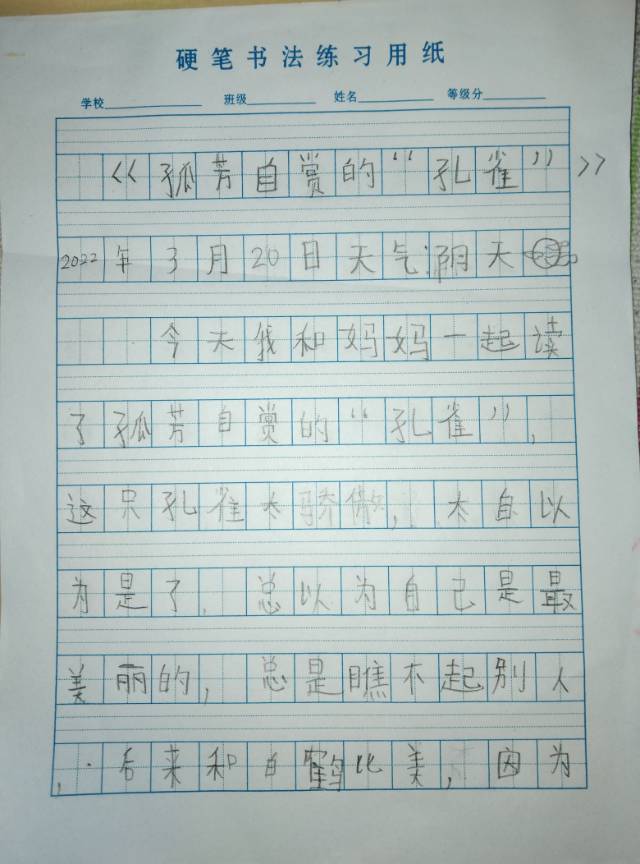 硬笔书法练习用纸
学校 班级 姓名 等级分
《孤芳自赏的“孔雀”》
2022年3月20日天气阴天
今天我和妈妈一起读
了孤芳自赏的“孔雀”，
这只孔雀太骄傲，太自以
为是了，总以为自己是最
美丽的，总是瞧不起别人
，后来和白鹤比美，因为